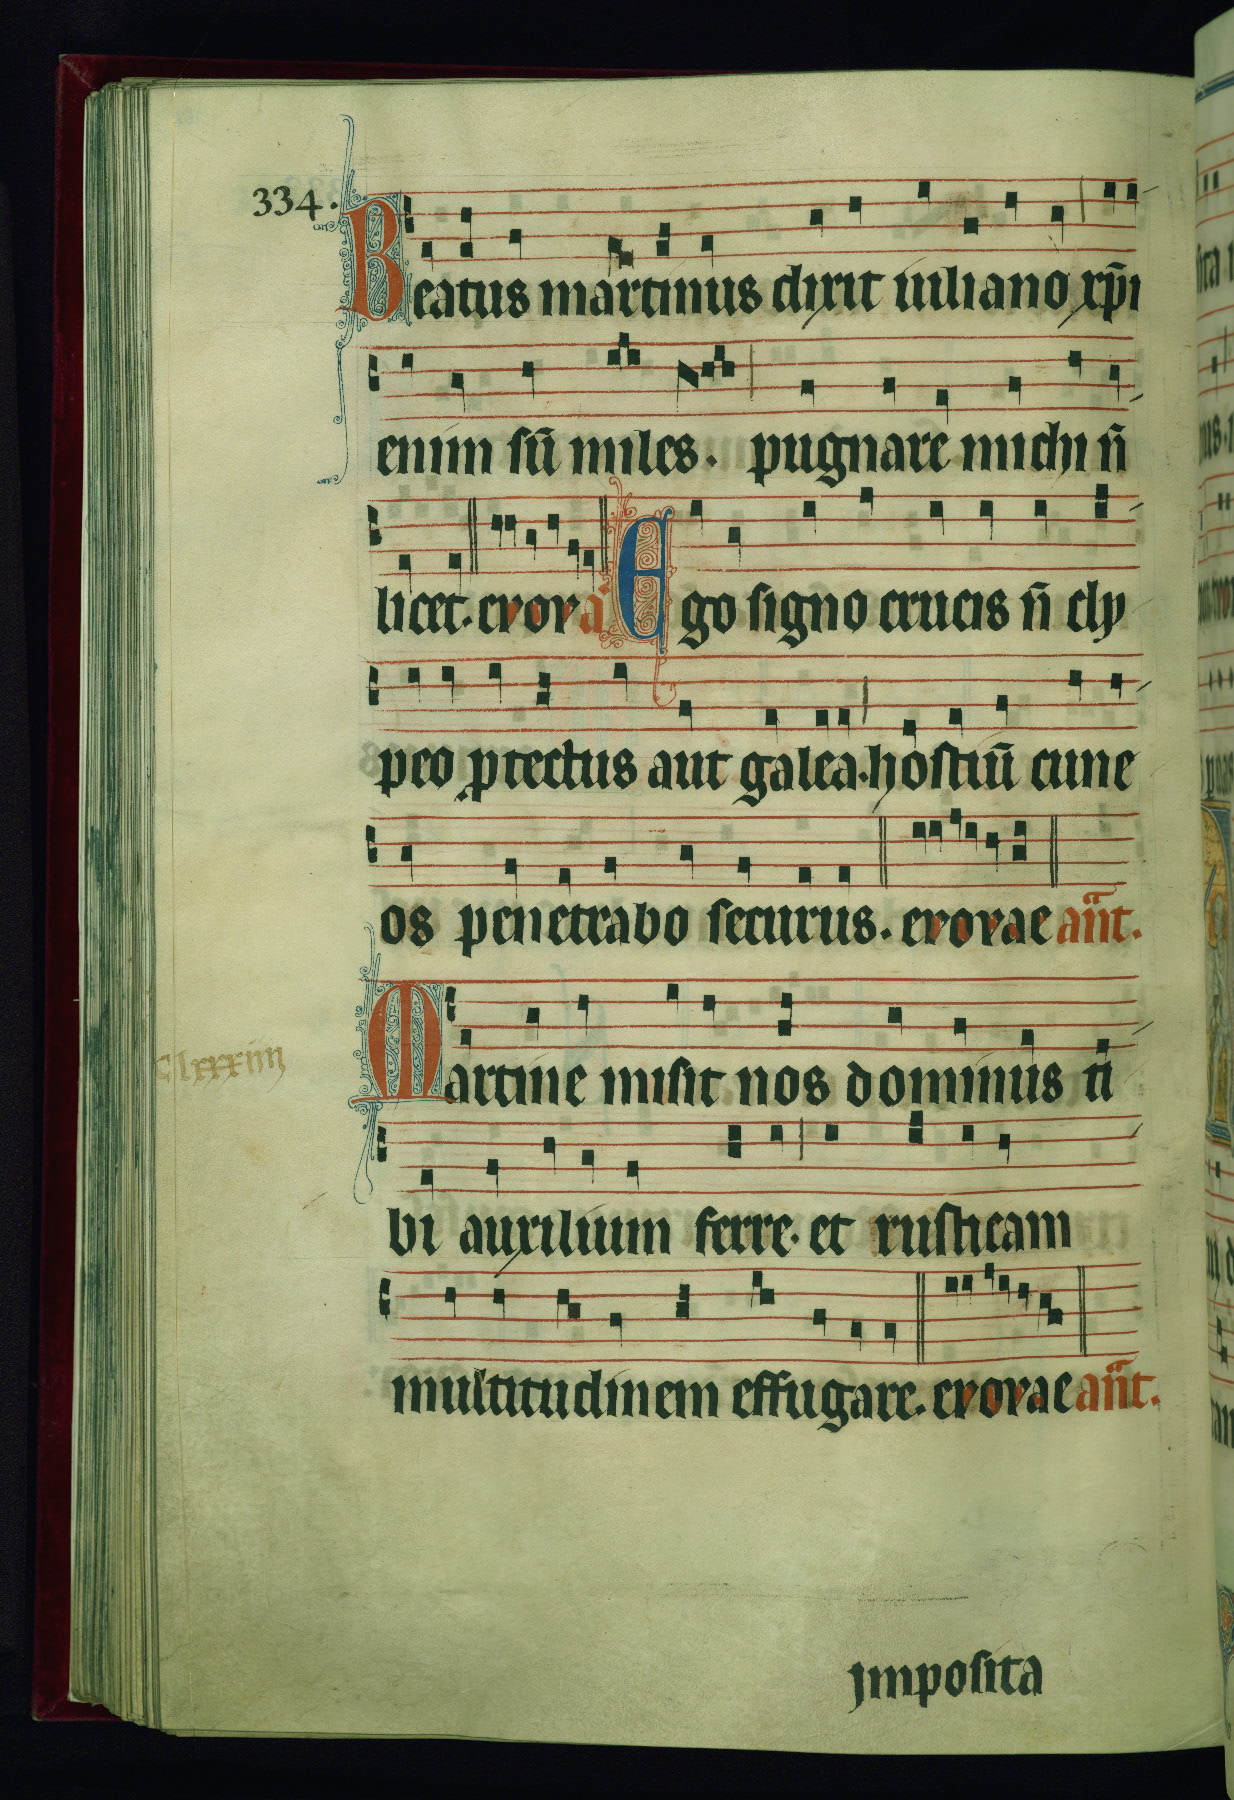 334.
Beatus martinus dixit iuliano xp̄i
enim sū miles. pugnare michi n̄
licet. evova a͞ Ego signo crucis n̄ cly
peo ꝓtectus aut galea. hostiū cune
os penetrabo securus. evovae an̄t.
Clxxxiiij
Martine misit nos dominus ti
bi auxilium ferre. et rusticam
multitudinem effugare. evovae an̄t.
jmposita